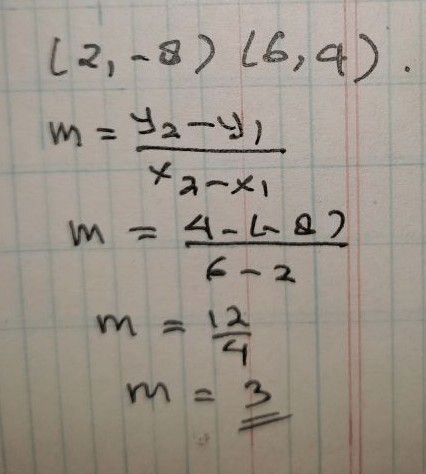 (2, -8) (6, 4).
m = y₂ - y₁ / x₂ - x₁
m = 4 - (-8) / 6 - 2
m = 12 / 4
m = 3